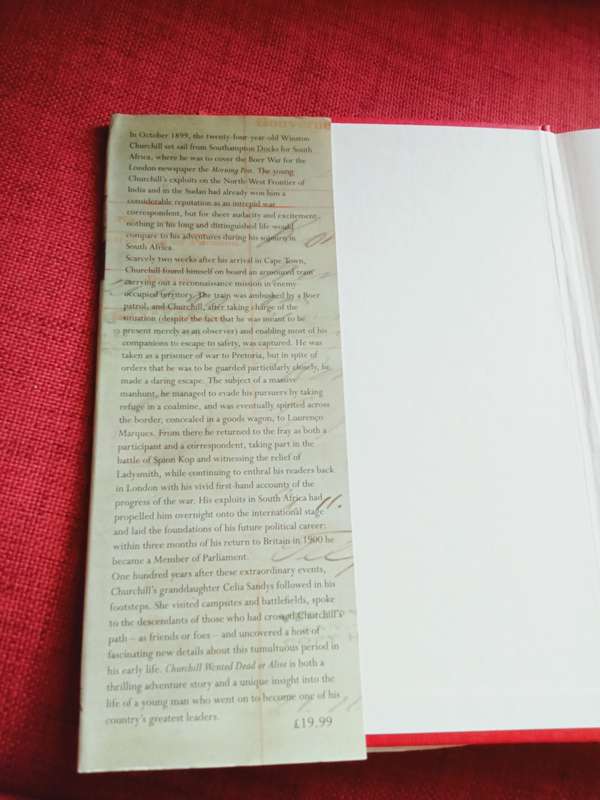 Gouverne
In October 1899, the twenty-four-year-old Winston
Churchill set sail from Southampton Docks for South
Africa, where he was to cover the Boer War for the
London newspaper the Morning Post. The young
Churchill's exploits on the North-West Frontier of
India and in the Sudan had already won him a
considerable reputation as an intrepid war
correspondent, but for sheer audacity and excitement
nothing in his long and distinguished life would
compare to his adventures during his sojourn in
South Africa.
Scarcely two weeks after his arrival in Cape Town,
Churchill found himself on board an armoured train
carrying out a reconnaissance mission in enemy
occupied territory. The train was ambushed by a Boer
patrol, and Churchill, after taking charge of the
situation (despite the fact that he was meant to be
present merely as an observer) and enabling most of his
companions to escape to safety, was captured. He was
taken as a prisoner of war to Pretoria, but in spite of
orders that he was to be guarded particularly closely, he
made a daring escape. The subject of a massive
manhunt, he managed to evade his pursuers by taking
refuge in a coalmine, and was eventually spirited across
the border, concealed in a goods wagon, to Lourenço
Marques. From there he returned to the fray as both a
participant and a correspondent, taking part in the
battle of Spion Kop and witnessing the relief of
Ladysmith, while continuing to enthral his readers back
in London with his vivid first-hand accounts of the
progress of the war. His exploits in South Africa had
propelled him overnight onto the international stage
and laid the foundations of his future political career:
within three months of his return to Britain in 1900 he
became a Member of Parliament.
One hundred years after these extraordinary events,
Churchill's granddaughter Celia Sandys followed in his
footsteps. She visited campsites and battlefields, spoke
to the descendants of those who had crossed Churchill's
path – as friends or foes – and uncovered a host of
fascinating new details about this tumultuous period in
his early life. Churchill Wanted Dead or Alive is both a
thrilling adventure story and a unique insight into the
life of a young man who went on to become one of his
country's greatest leaders.
£19.99